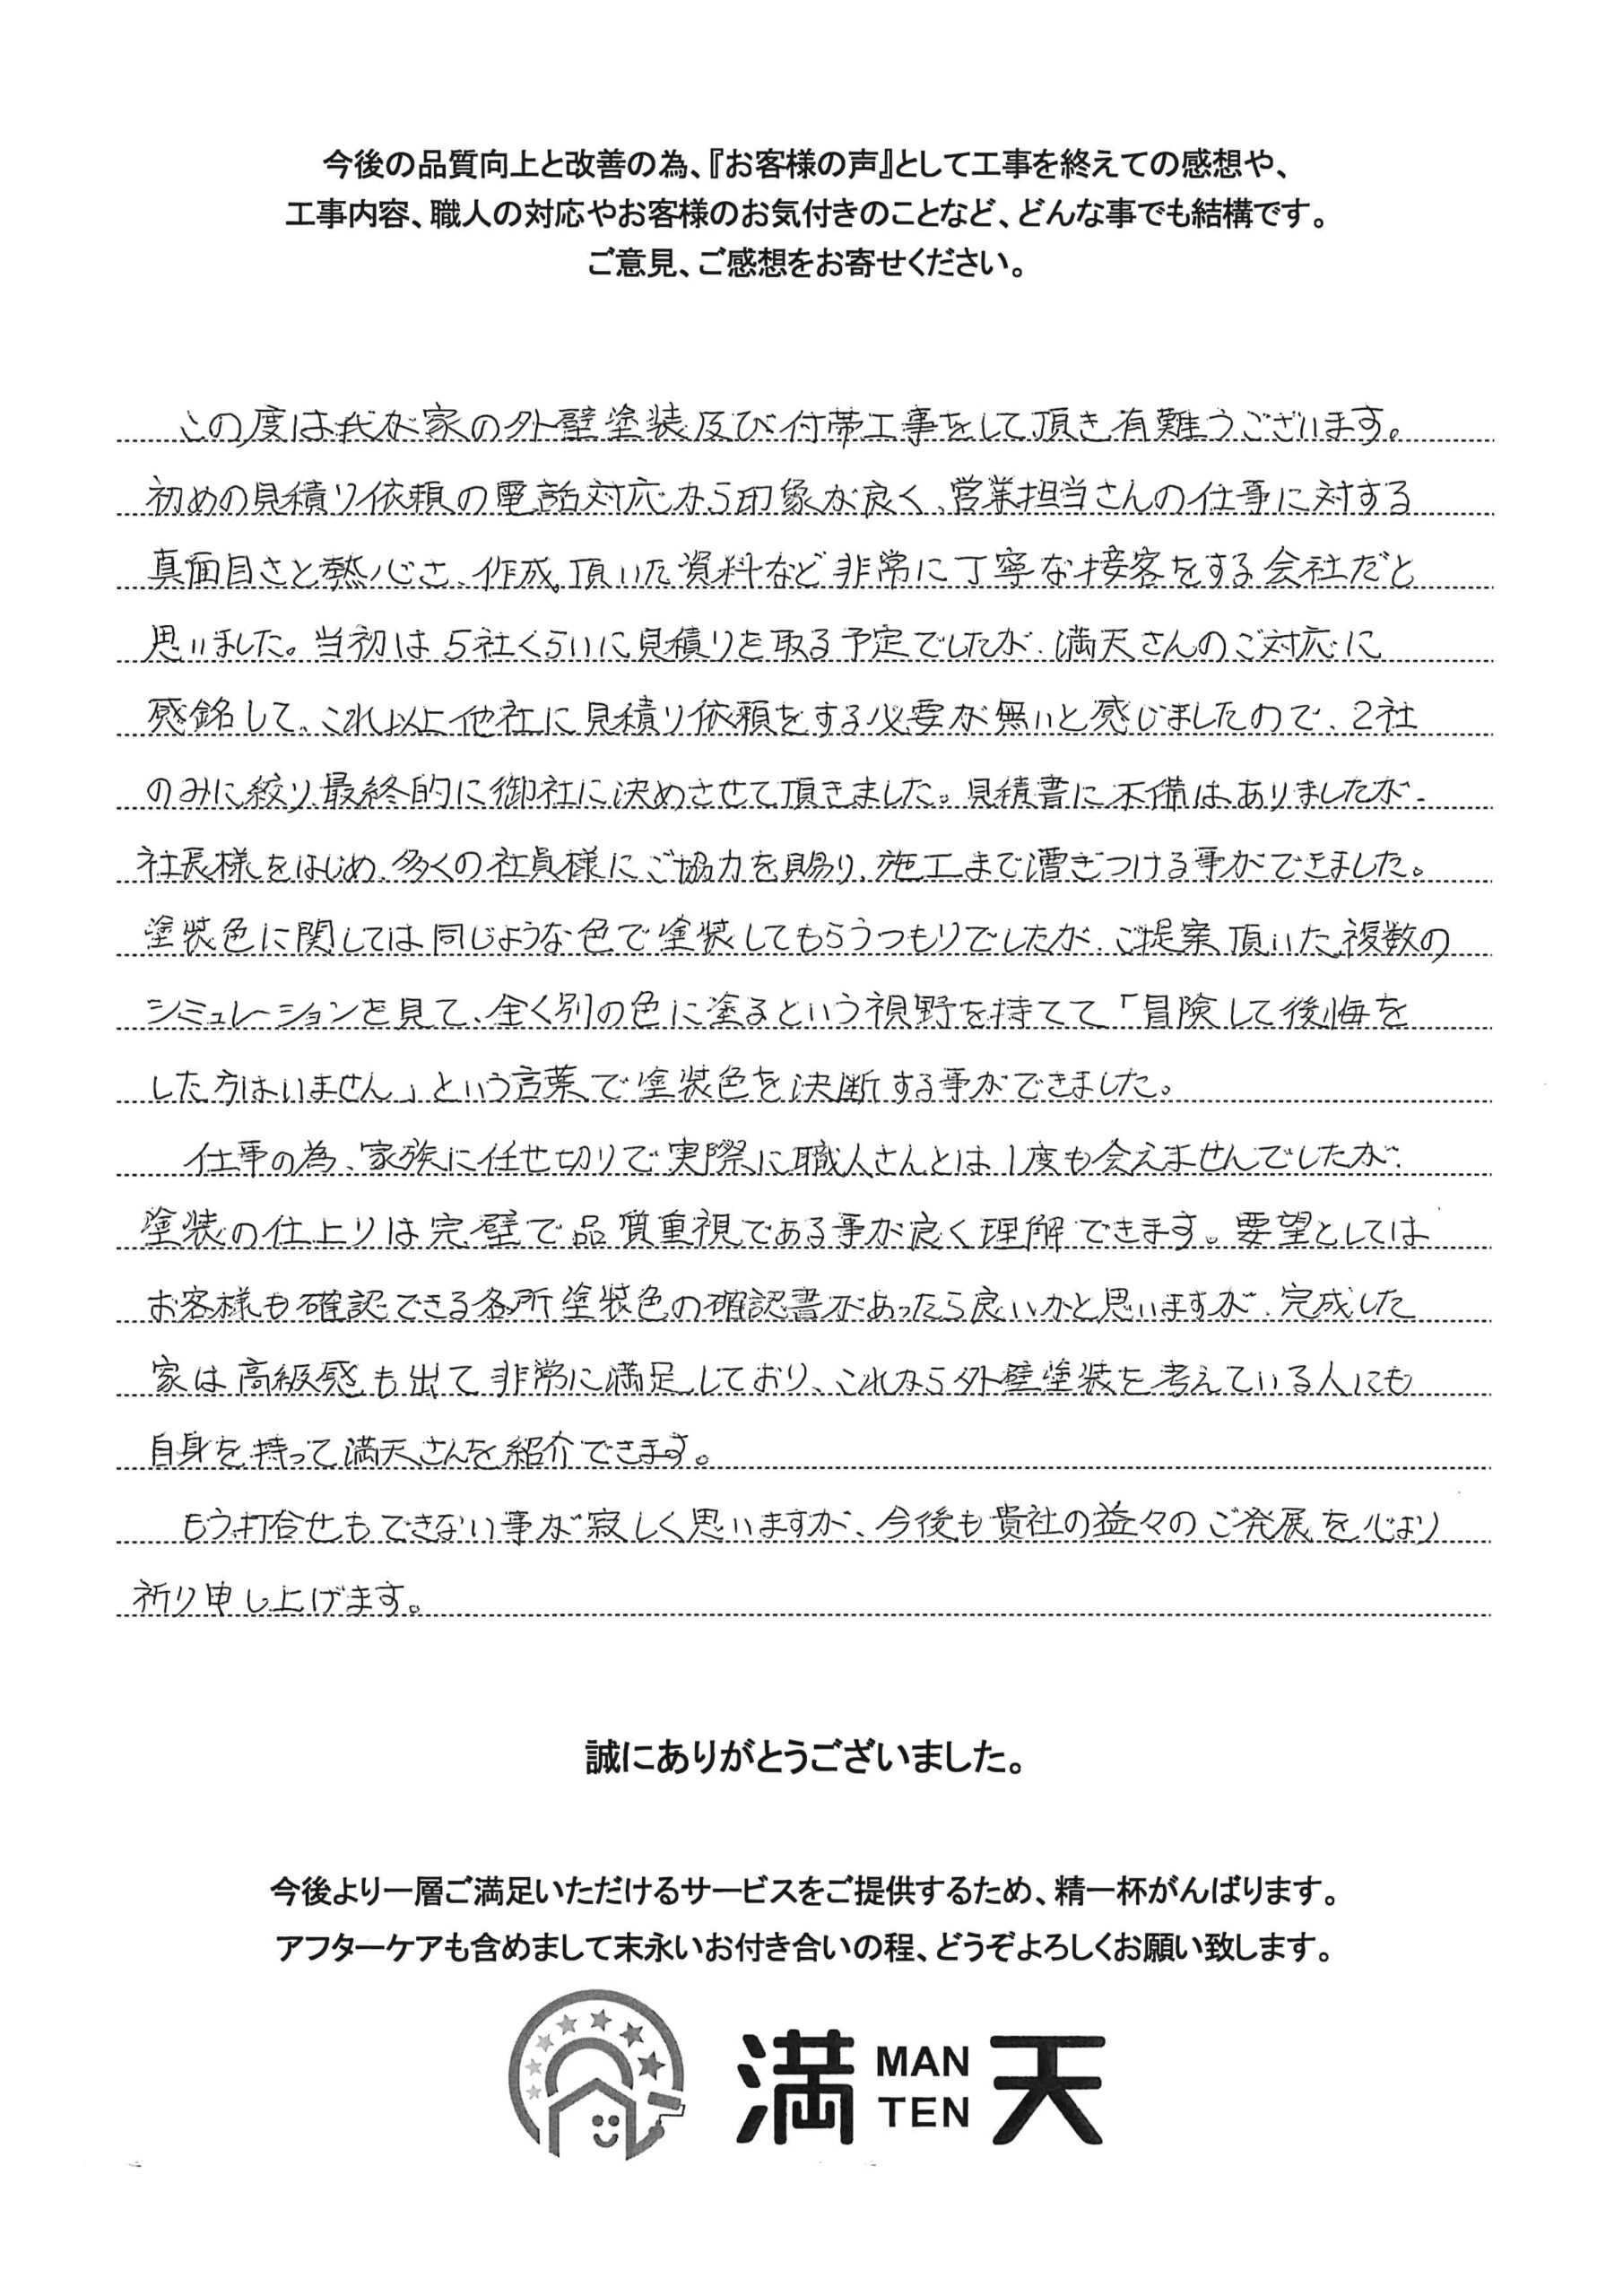 今後の品質向上と改善の為、『お客様の声』として工事を終えての感想や、
工事内容、職人の対応やお客様のお気付きのことなど、どんな事でも結構です。
ご意見、ご感想をお寄せください。
この度は我が家の外壁塗装及び付帯工事をして頂き有難うございます。
初めの見積り依頼の電話対応から印象が良く、営業担当さんの仕事に対する
真面目さと熱心さ、作成頂いた資料など非常に丁寧な接客をする会社だと
思いました。当初は5社くらいに見積りを取る予定でしたが、満天さんのご対応に
感銘して、これ以上他社に見積り依頼をする必要が無いと感じましたので、2社
のみに絞り、最終的に御社に決めさせて頂きました。見積書に不備はありましたが、
社長様をはじめ、多くの社員様にご協力を賜り、施工まで漕ぎつける事ができました。
塗装色に関しては同じような色で塗装してもらうつもりでしたが、ご提案頂いた複数の
シミュレーションを見て、全く別の色に塗るという視野を持てて「冒険して後悔を
した方はいません」という言葉で塗装色を決断する事ができました。
仕事の為、家族に任せ切りで実際に職人さんとは1度も会えませんでしたが、
塗装の仕上りは完璧で品質重視である事が良く理解できます。要望としては
お客様も確認できる各所塗装色の確認書があったら良いかと思いますが、完成した
家は高級感も出て非常に満足しており、これから外壁塗装を考えている人にも
自身を持って満天さんを紹介できます。
もう打合せもできない事が寂しく思いますが、今後も貴社の益々のご発展を心より
祈り申し上げます。
誠にありがとうございました。
今後より一層ご満足いただけるサービスをご提供するため、精一杯がんばります。
アフターケアも含めまして末永いお付き合いの程、どうぞよろしくお願い致します。
満 MAN TEN 天